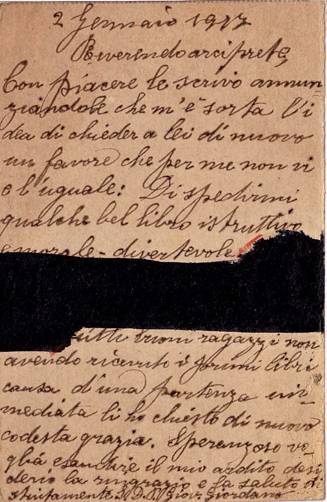 2 Gennaio 1917
Reverendo arciprete
Con piacere le scrivo annun
ziandole che m'è sorta l'i
dea di chieder a lei di nuovo
un favore che per me non vi
è l'uguale: Di spedirmi
qualche bel libro istruttivo
e morale-divertevole
tutti buoni ragazzi non
avendo ricevuti i primi libri
causa d'una partenza im
mediata li ho chiesto di nuovo
codesta grazia. Speranzoso vo
glia esaudire il mio ardito desi
derio la ringrazio e la saluto di
stintamente Giordano